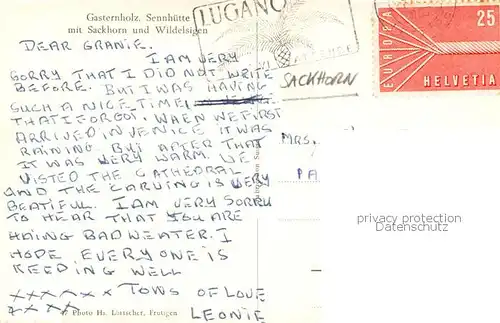 Gasternholz. Sennhütte
mit Sackhorn und Wildelsigen
LUGANO
SACKHORN
EUROPA
25
HELVETIA
DEAR GRANIE.
I AM VERY
SORRY THAT I DID NOT WRITE
BEFORE. BUT I WAS HAVING
SUCH A NICE TIME!
THAT I FORGOT. WHEN WE FIRST
ARRIVED IN VENICE IT WAS
RAINING. BUT AFTER THAT
IT WAS VERY WARM. WE
VISTED THE CATHEDRAL
AND THE CARVING IS VERY
BEATIFUL. I AM VERY SORRY
TO HEAR THAT YOU ARE
HAING BAD WEATER. I
HOPE EVERYONE IS
KEEDING WELL
XXXXXXX TOWS OF LOVE
XXXX LEONIE
Photo Hs. Lörtscher, Frutigen
MRS.
PA
privacy protection
Datenschutz